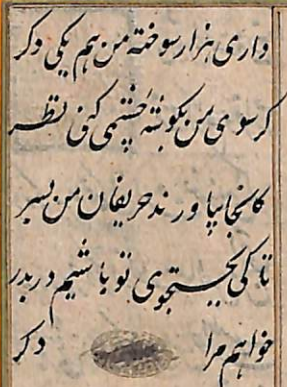 داری هزار سوخته من هم یکی دکر
کر سوی من بکوشه چشمی کنی نظر
کانجا بیاورند حریفان من بسر
تا کی بجستجوی تو باشیم در بدر
خواهم مرا دکر